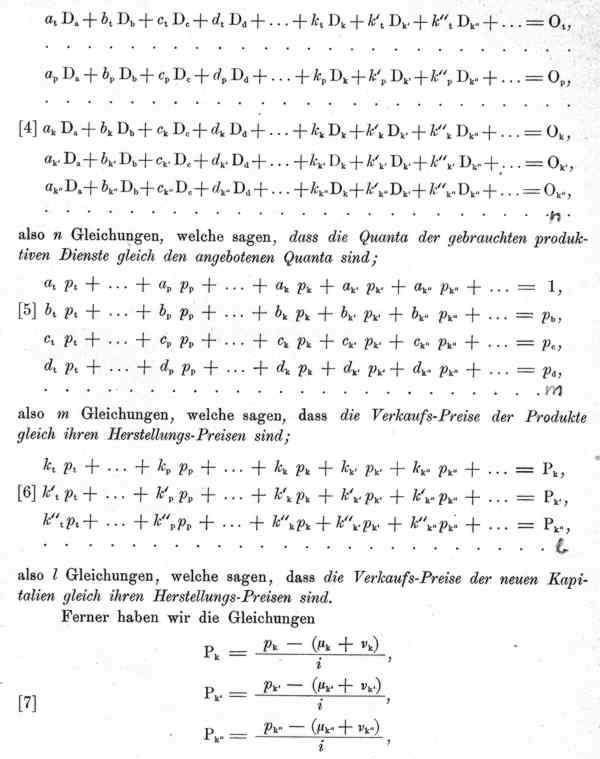 aₜ Dₐ + bₜ D_b + cₜ D_c + dₜ D_d + ... + kₜ D_k + k′ₜ D_k′ + k″ₜ D_k″ + ... = Oₜ,
. . . . . . . . . . . . . . . . . . . .
a_p Dₐ + b_p D_b + c_p D_c + d_p D_d + ... + k_p D_k + k′_p D_k′ + k″_p D_k″ + ... = O_p,
. . . . . . . . . . . . . . . . . . . .
[4] a_k Dₐ + b_k D_b + c_k D_c + d_k D_d + ... + k_k D_k + k′_k D_k′ + k″_k D_k″ + ... = O_k,
a_k′ Dₐ + b_k′ D_b + c_k′ D_c + d_k′ D_d + ... + k_k′ D_k + k′_k′ D_k′ + k″_k′ D_k″ + ... = O_k′,
a_k″ Dₐ + b_k″ D_b + c_k″ D_c + d_k″ D_d + ... + k_k″ D_k + k′_k″ D_k′ + k″_k″ D_k″ + ... = O_k″,
. . . . . . . . . . . . . . . . . . . . n
also n Gleichungen, welche sagen, dass die Quanta der gebrauchten produk-
tiven Dienste gleich den angebotenen Quanta sind;
aₜ pₜ + ... + a_p p_p + ... + a_k p_k + a_k′ p_k′ + a_k″ p_k″ + ... = 1,
[5] bₜ pₜ + ... + b_p p_p + ... + b_k p_k + b_k′ p_k′ + b_k″ p_k″ + ... = p_b,
cₜ pₜ + ... + c_p p_p + ... + c_k p_k + c_k′ p_k′ + c_k″ p_k″ + ... = p_c,
dₜ pₜ + ... + d_p p_p + ... + d_k p_k + d_k′ p_k′ + d_k″ p_k″ + ... = p_d,
. . . . . . . . . . . . . . . . . . . . m
also m Gleichungen, welche sagen, dass die Verkaufs-Preise der Produkte
gleich ihren Herstellungs-Preisen sind;
kₜ pₜ + ... + k_p p_p + ... + k_k p_k + k_k′ p_k′ + k_k″ p_k″ + ... = P_k,
[6] k′ₜ pₜ + ... + k′_p p_p + ... + k′_k p_k + k′_k′ p_k′ + k′_k″ p_k″ + ... = P_k′,
k″ₜ pₜ + ... + k″_p p_p + ... + k″_k p_k + k″_k′ p_k′ + k″_k″ p_k″ + ... = P_k″,
. . . . . . . . . . . . . . . . . . . . l
also l Gleichungen, welche sagen, dass die Verkaufs-Preise der neuen Kapi-
talien gleich ihren Herstellungs-Preisen sind.
Ferner haben wir die Gleichungen
P_k = (p_k − (μ_k + ν_k)) / i,
[7] P_k′ = (p_k′ − (μ_k′ + ν_k′)) / i,
P_k″ = (p_k″ − (μ_k″ + ν_k″)) / i,